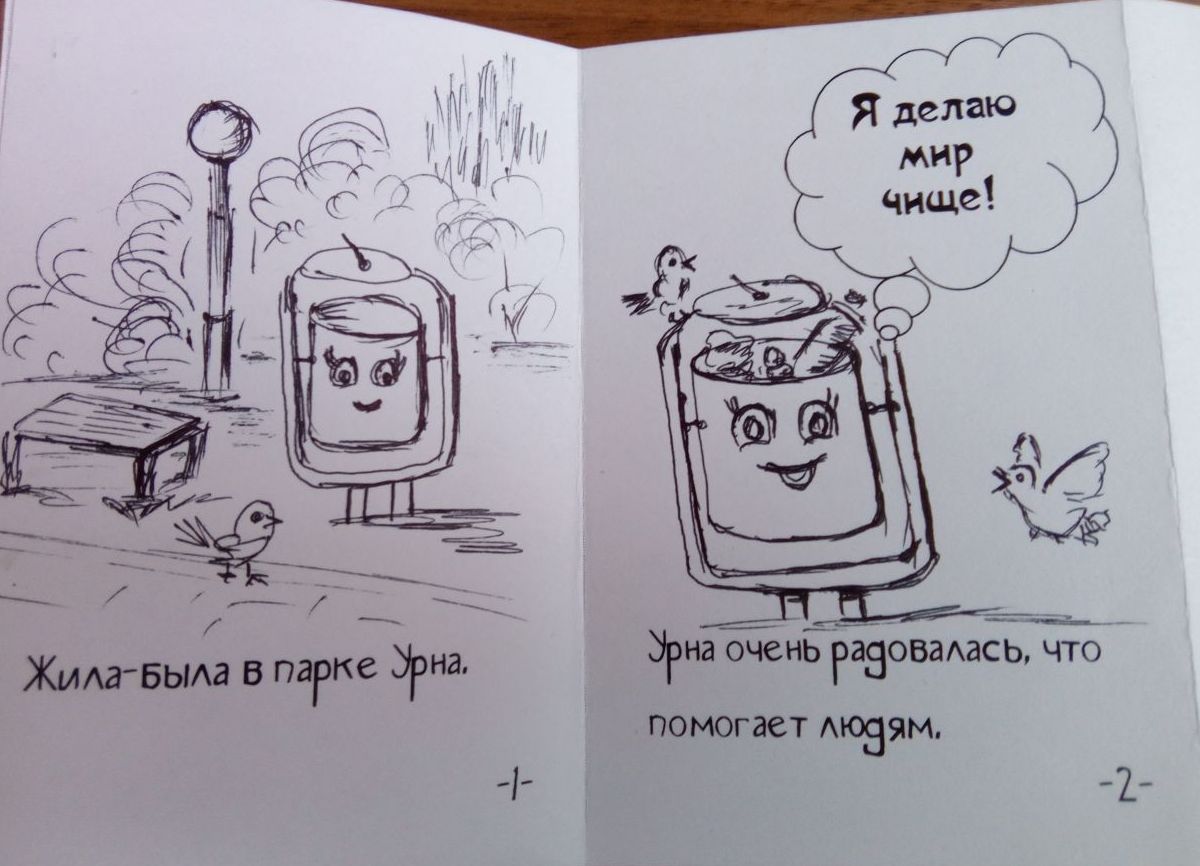 Жила-была в парке Урна.
-1-
Я делаю
мир
чище!
Урна очень радовалась, что
помогает людям.
-2-